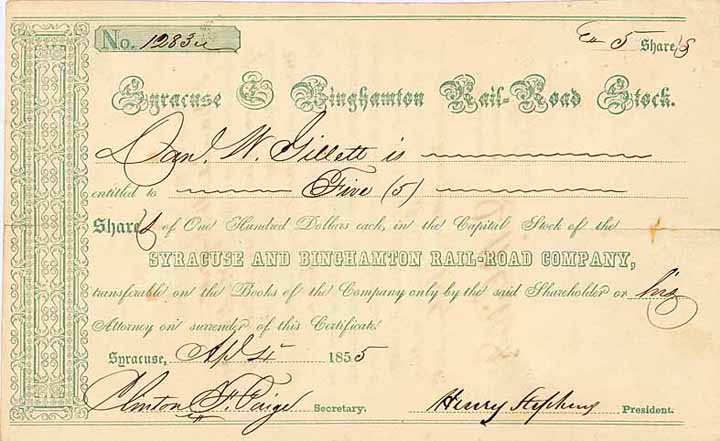 No. 1283
5 Shares
Syracuse & Binghamton Rail-Road Stock.
Danl. W. Gillett is
entitled to Five (5)
Shares of One Hundred Dollars each, in the Capital Stock of the
SYRACUSE AND BINGHAMTON RAIL-ROAD COMPANY,
transferable on the Books of the Company only by the said Shareholder or his
Attorney on surrender of this Certificate.
Syracuse, Apl 4 1855
Clinton F. Paige Secretary. Henry Stephens President.